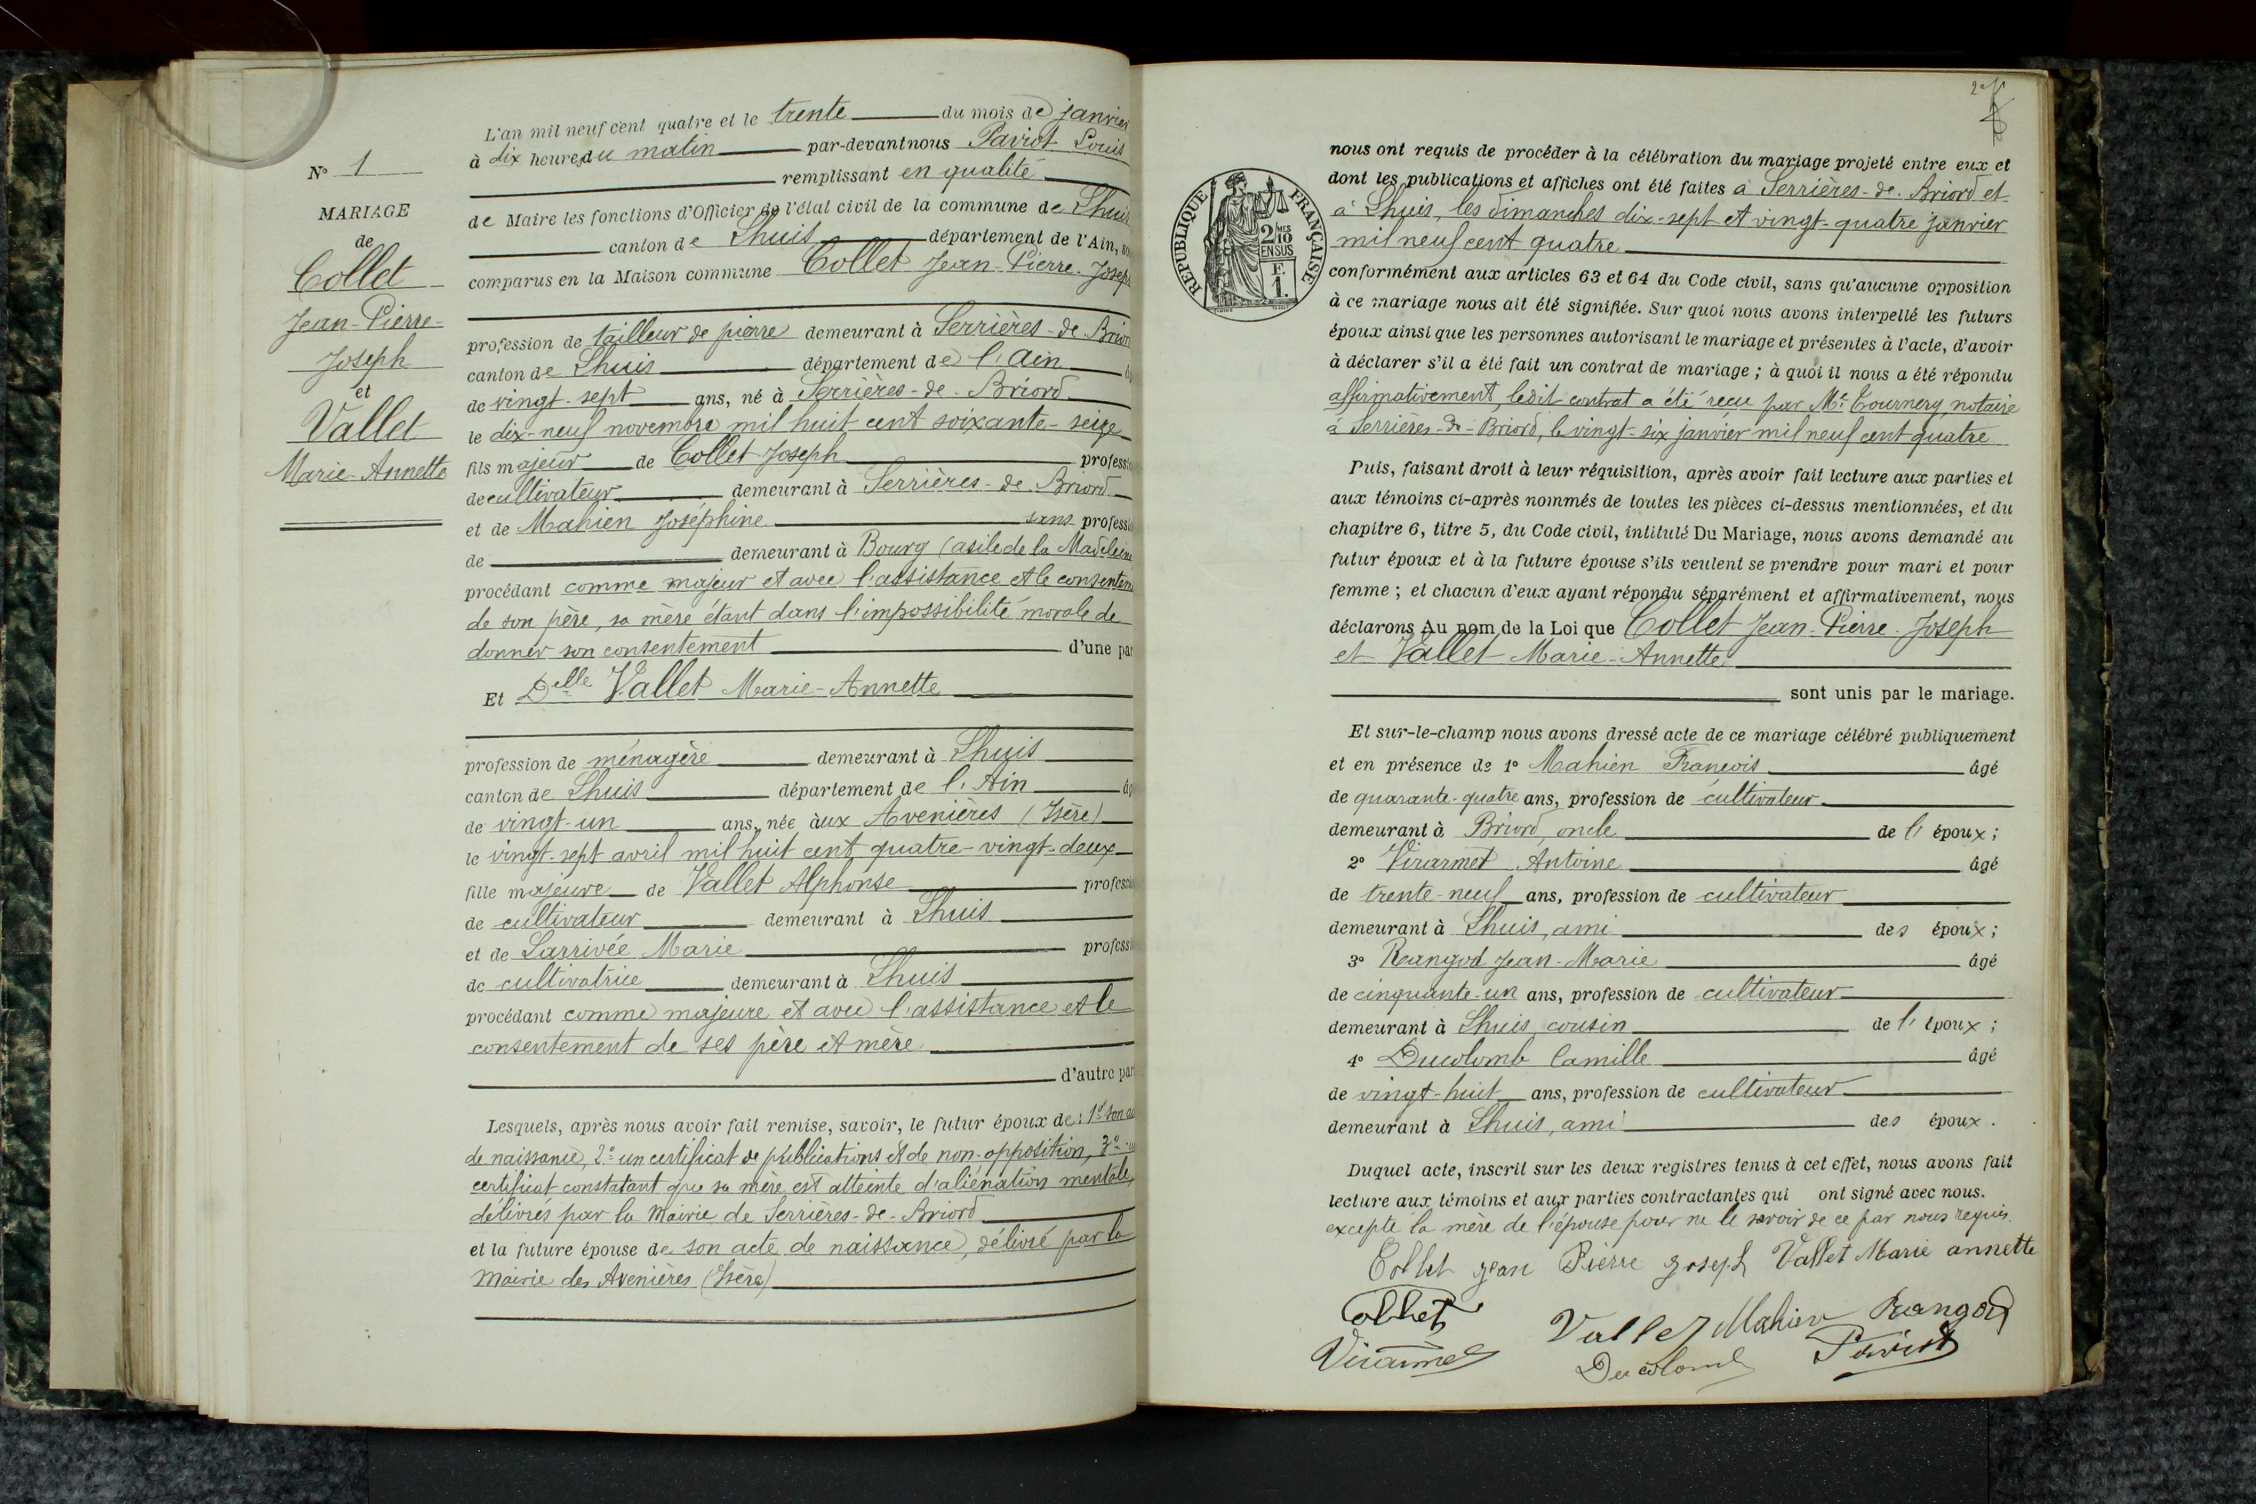 N° 1
MARIAGE
de
Collet
Jean-Pierre-
Joseph
et
Vallet
Marie-Annette
L'an mil neuf cent quatre et le trente du mois de janvier
à dix heures du matin par-devant nous Paviot Louis
remplissant en qualité
de Maire les fonctions d'Officier de l'état civil de la commune de Lhuis
canton de Lhuis département de l'Ain,
comparus en la Maison commune Collet Jean-Pierre-Joseph
profession de tailleur de pierre demeurant à Serrières-de-Briord
canton de Lhuis département de l'Ain
de vingt-sept ans, né à Serrières-de-Briord
le dix-neuf novembre mil huit cent soixante-seize
fils majeur de Collet Joseph profession
de cultivateur demeurant à Serrières-de-Briord
et de Mahien Joséphine sans profession
de demeurant à Bourg (asile de la Madeleine
procédant comme majeur et avec l'assistance et le consentem
de son père, sa mère étant dans l'impossibilité morale de
donner son consentement d'une par
Et Delle Vallet Marie-Annette
profession de ménagère demeurant à Lhuis
canton de Lhuis département de l'Ain âg
de vingt-un ans, née aux Avenières (Isère)
le vingt-sept avril mil huit cent quatre-vingt-deux
fille majeure de Vallet Alphonse profession
de cultivateur demeurant à Lhuis
et de Larrivée Marie professi
de cultivatrice demeurant à Lhuis
procédant comme majeure et avec l'assistance et le
consentement de ses père et mère
d'autre part
Lesquels, après nous avoir fait remise, savoir, le futur époux de : 1° son ac
de naissance, 2° un certificat de publications et de non-opposition, 3° un
certificat constatant que sa mère est atteinte d'aliénation mentale,
délivrés par la Mairie de Serrières-de-Briord
et la future épouse de son acte de naissance, délivré par la
Mairie des Avenières (Isère)
2e
REPUBLIQUE FRANÇAISE
2/10 MES
EN SUS
F.
1.
nous ont requis de procéder à la célébration du mariage projeté entre eux et
dont les publications et affiches ont été faites à Serrières-de-Briord et
à Lhuis, les dimanches dix-sept et vingt-quatre janvier
mil neuf cent quatre
conformément aux articles 63 et 64 du Code civil, sans qu'aucune opposition
à ce mariage nous ait été signifiée. Sur quoi nous avons interpellé les futurs
époux ainsi que les personnes autorisant le mariage et présentes à l'acte, d'avoir
à déclarer s'il a été fait un contrat de mariage ; à quoi il nous a été répondu
affirmativement, ledit contrat a été reçu par Me Tournery, notaire
à Serrières-de-Briord, le vingt-six janvier mil neuf cent quatre
Puis, faisant droit à leur réquisition, après avoir fait lecture aux parties et
aux témoins ci-après nommés de toutes les pièces ci-dessus mentionnées, et du
chapitre 6, titre 5, du Code civil, intitulé Du Mariage, nous avons demandé au
futur époux et à la future épouse s'ils veulent se prendre pour mari et pour
femme ; et chacun d'eux ayant répondu séparément et affirmativement, nous
déclarons Au nom de la Loi que Collet Jean-Pierre-Joseph
et Vallet Marie-Annette
sont unis par le mariage.
Et sur-le-champ nous avons dressé acte de ce mariage célébré publiquement
et en présence de 1° Mahien François âgé
de quarante-quatre ans, profession de cultivateur
demeurant à Briord, oncle de l'époux ;
2° Virarmet Antoine âgé
de trente-neuf ans, profession de cultivateur
demeurant à Lhuis, ami des époux ;
3° Rangod Jean-Marie âgé
de cinquante-un ans, profession de cultivateur
demeurant à Lhuis, cousin de l'époux ;
4° Ducolomb Camille âgé
de vingt-huit ans, profession de cultivateur
demeurant à Lhuis, ami des époux.
Duquel acte, inscrit sur les deux registres tenus à cet effet, nous avons fait
lecture aux témoins et aux parties contractantes qui ont signé avec nous.
excepté la mère de l'épouse pour ne le savoir de ce par nous requis.
Collet Jean Pierre Joseph Vallet Marie annette
Collet
Vallet Mahien Rangod
Virarmet Ducolomb Paviot